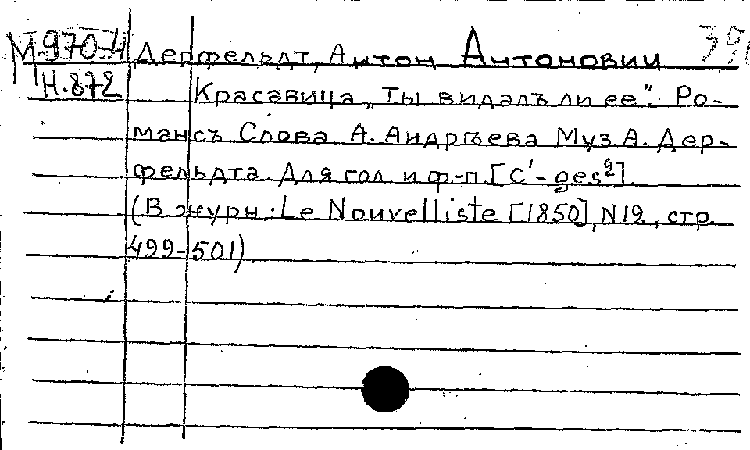 М-970-4 Дерфельдт, Антон Антонович 39
Н.872 Красавица „Ты видалъ ли ее". Ро-
мансъ Слова А. Андрѣева Муз А. Дер-
фельдта. Для гол и ф-п. [c¹-ges²]
(В журн.: Le Nouvelliste [1850], N12, стр
499-501)